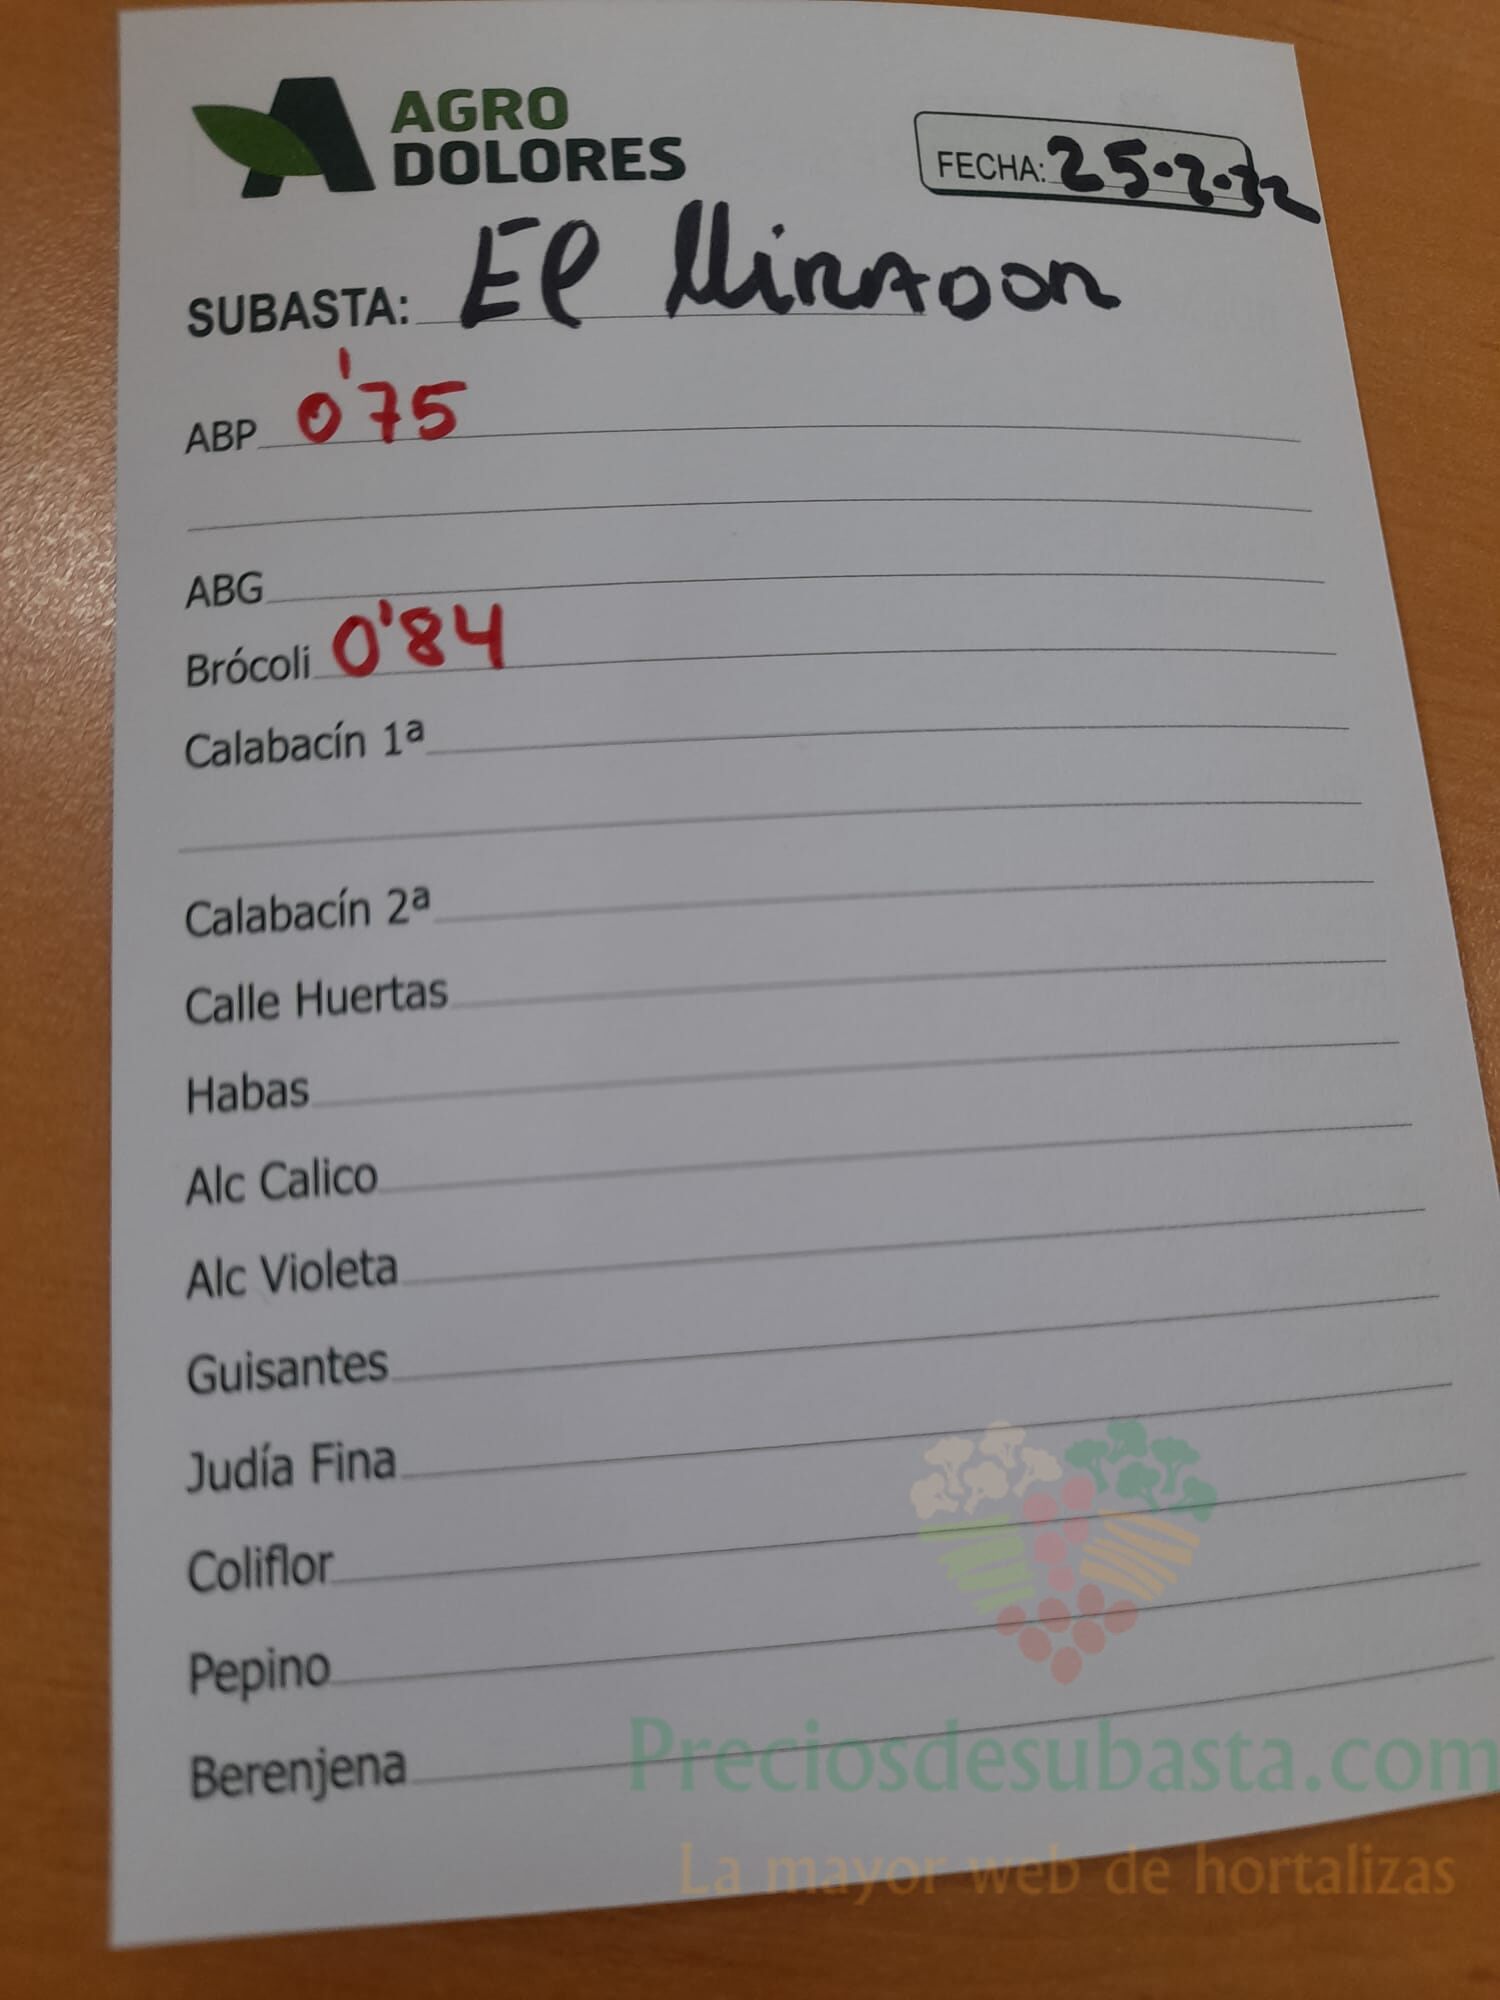 AGRO
DOLORES
FECHA: 25.2.22
SUBASTA: El Mirador
ABP 0'75
ABG
Brócoli 0'84
Calabacín 1ª
Calabacín 2ª
Calle Huertas
Habas
Alc Calico
Alc Violeta
Guisantes
Judía Fina
Coliflor
Pepino
Berenjena
Preciosdesubasta.com
La mayor web de hortalizas